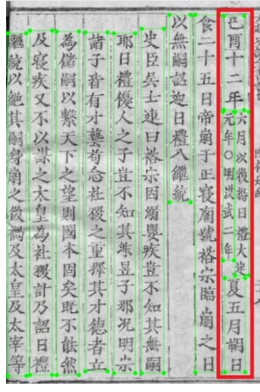 己酉十二年六月以後楊日禮大定元年〇明洪武二年夏五月朔日
食二十五日帝崩于正寢廟號裕宗臨崩之日
以無嗣詔迎日禮入繼統
史臣吳士連曰裕宗因溺嬰疾豈不知其無嗣
耶日禮優人之子豈不知其非昱子耶況明宗
諸子皆有才藝苟念社稷之重擇其才德者立
為儲嗣以繫天下之望則國本固矣既不能然
及寢疾又不以謀之大臣為社稷計乃詔日禮
繼統以絕其嗣身崩之後禍及太皇及太宰等